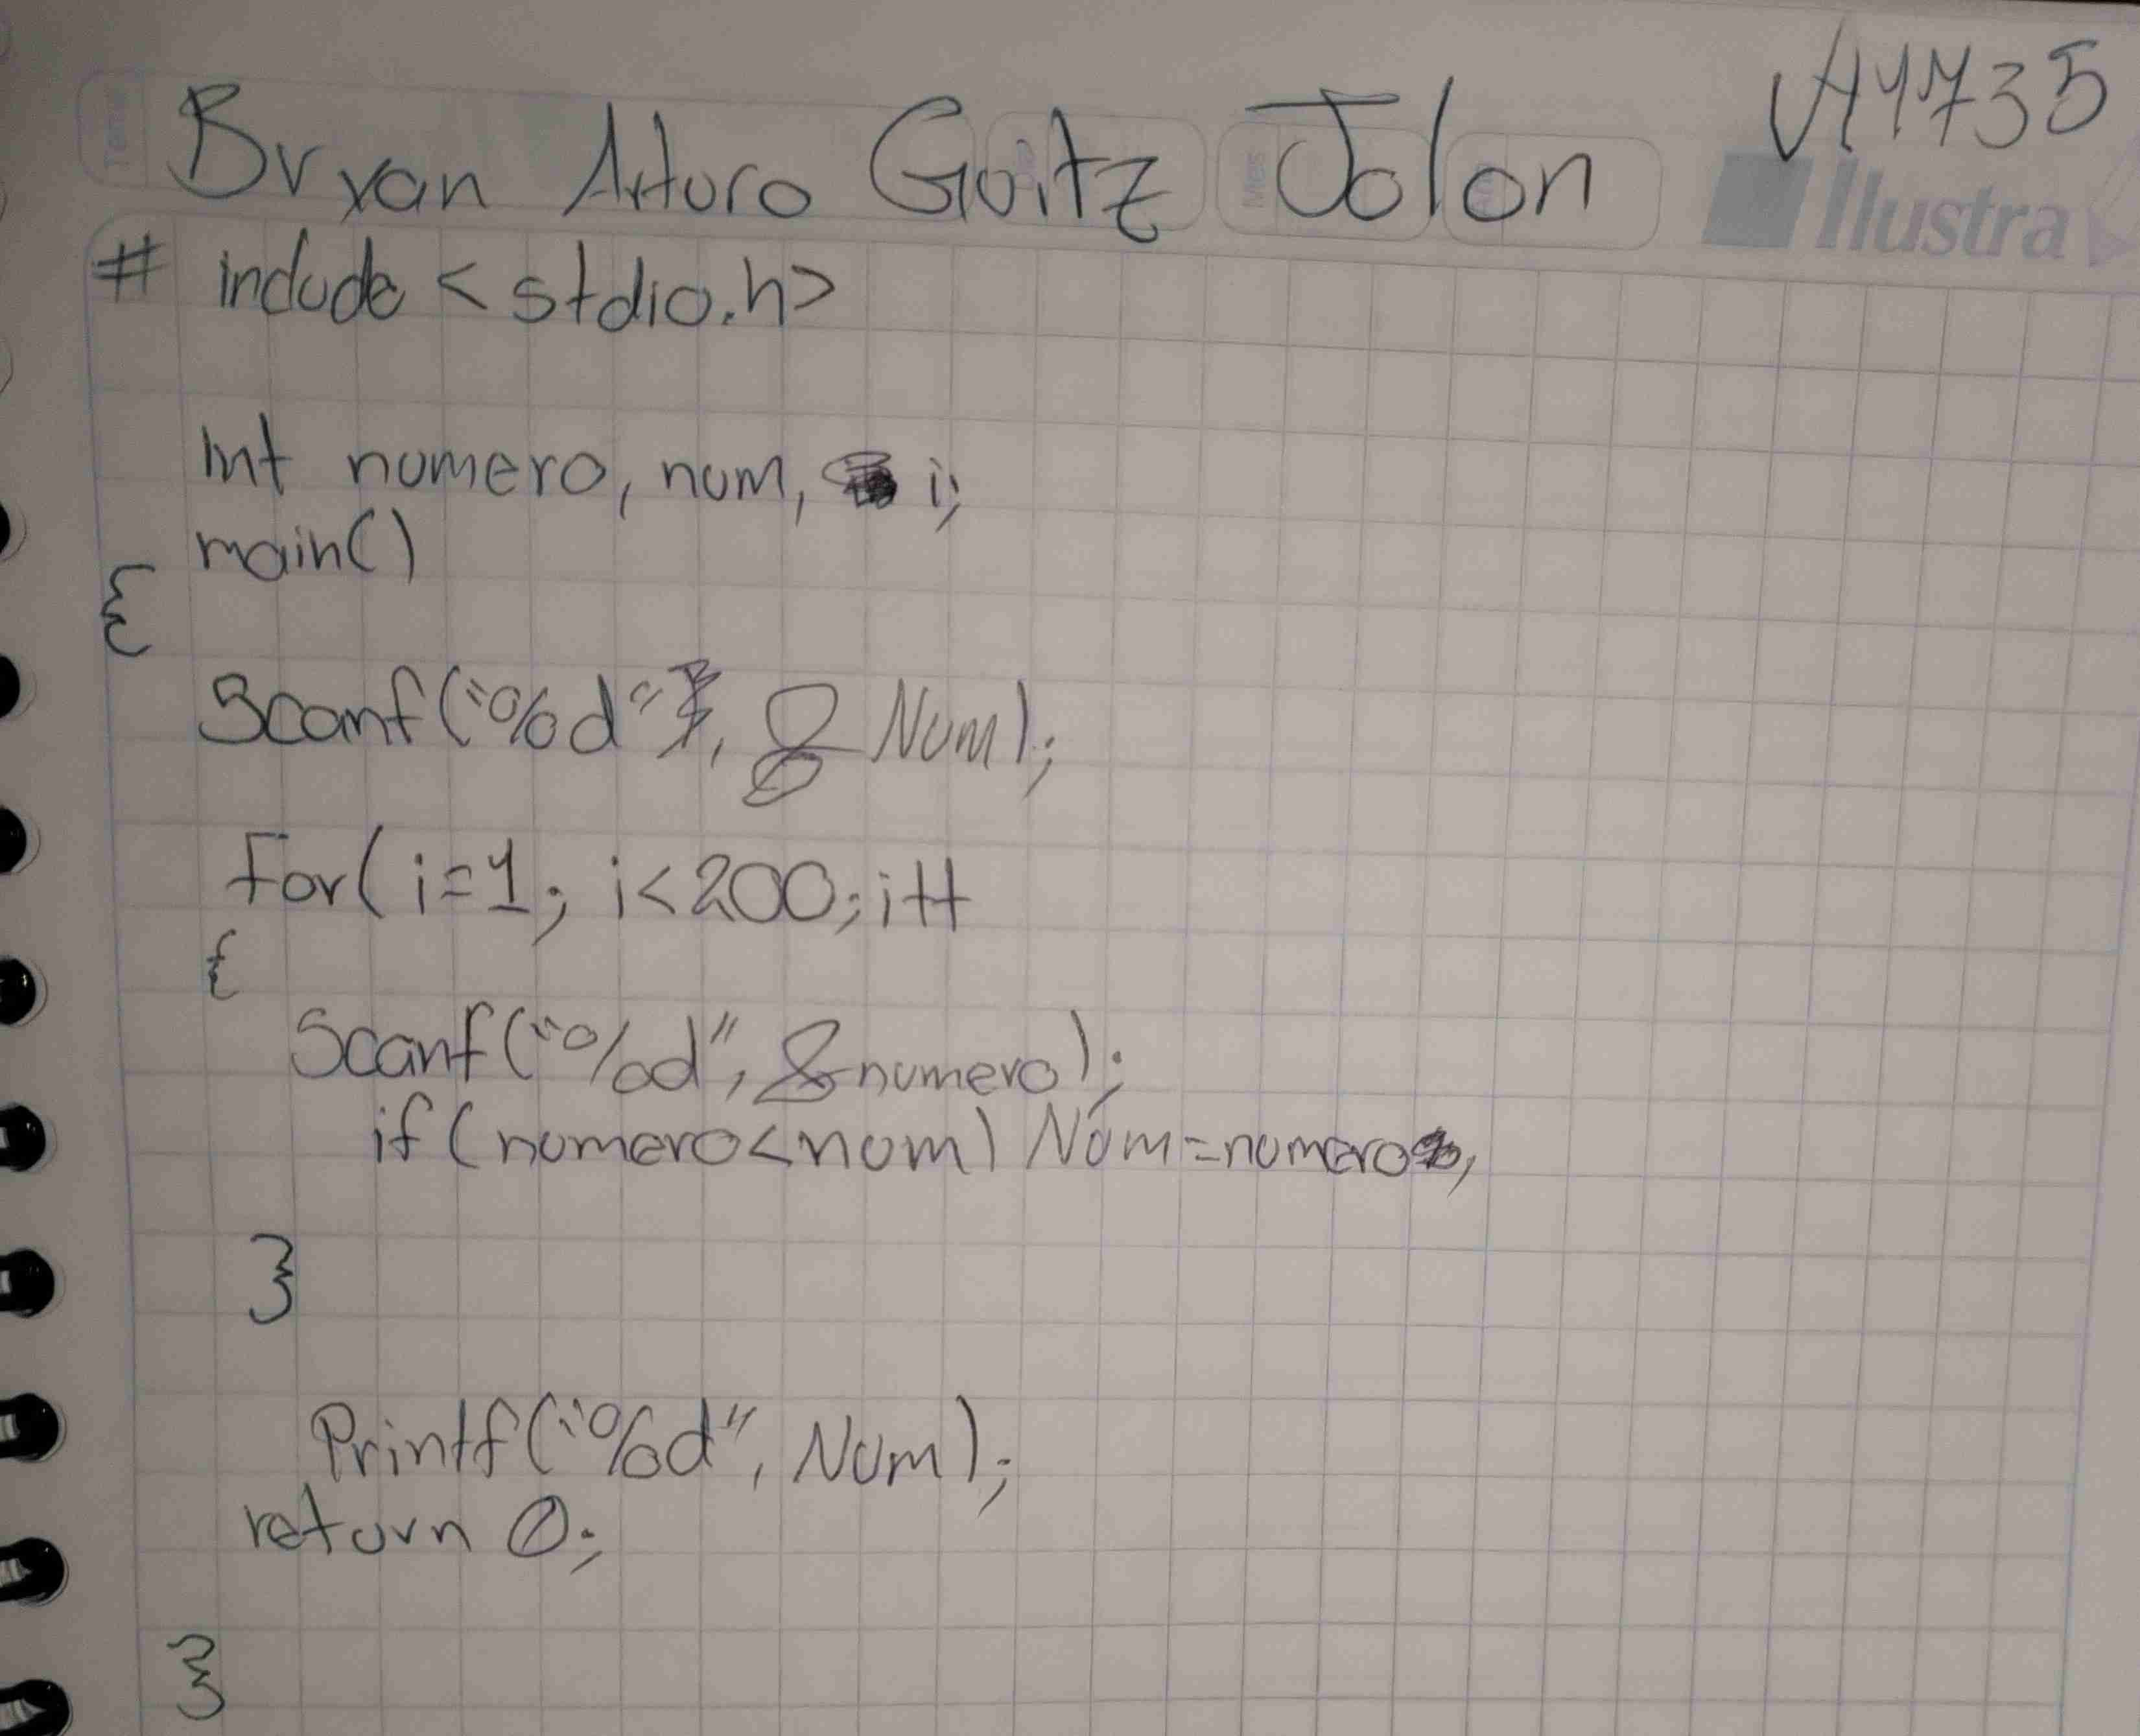 Bryan Arturo Guitz Jolon
Ilustra
# include <stdio.h>
int numero, num, i;
main()
{
Scanf("%d", & Num);
For( i=1; i<200; i++
{
Scanf("%d", &numero);
if (numero<num) Num=numero;
}
Printf("%d", Num);
return 0;
}